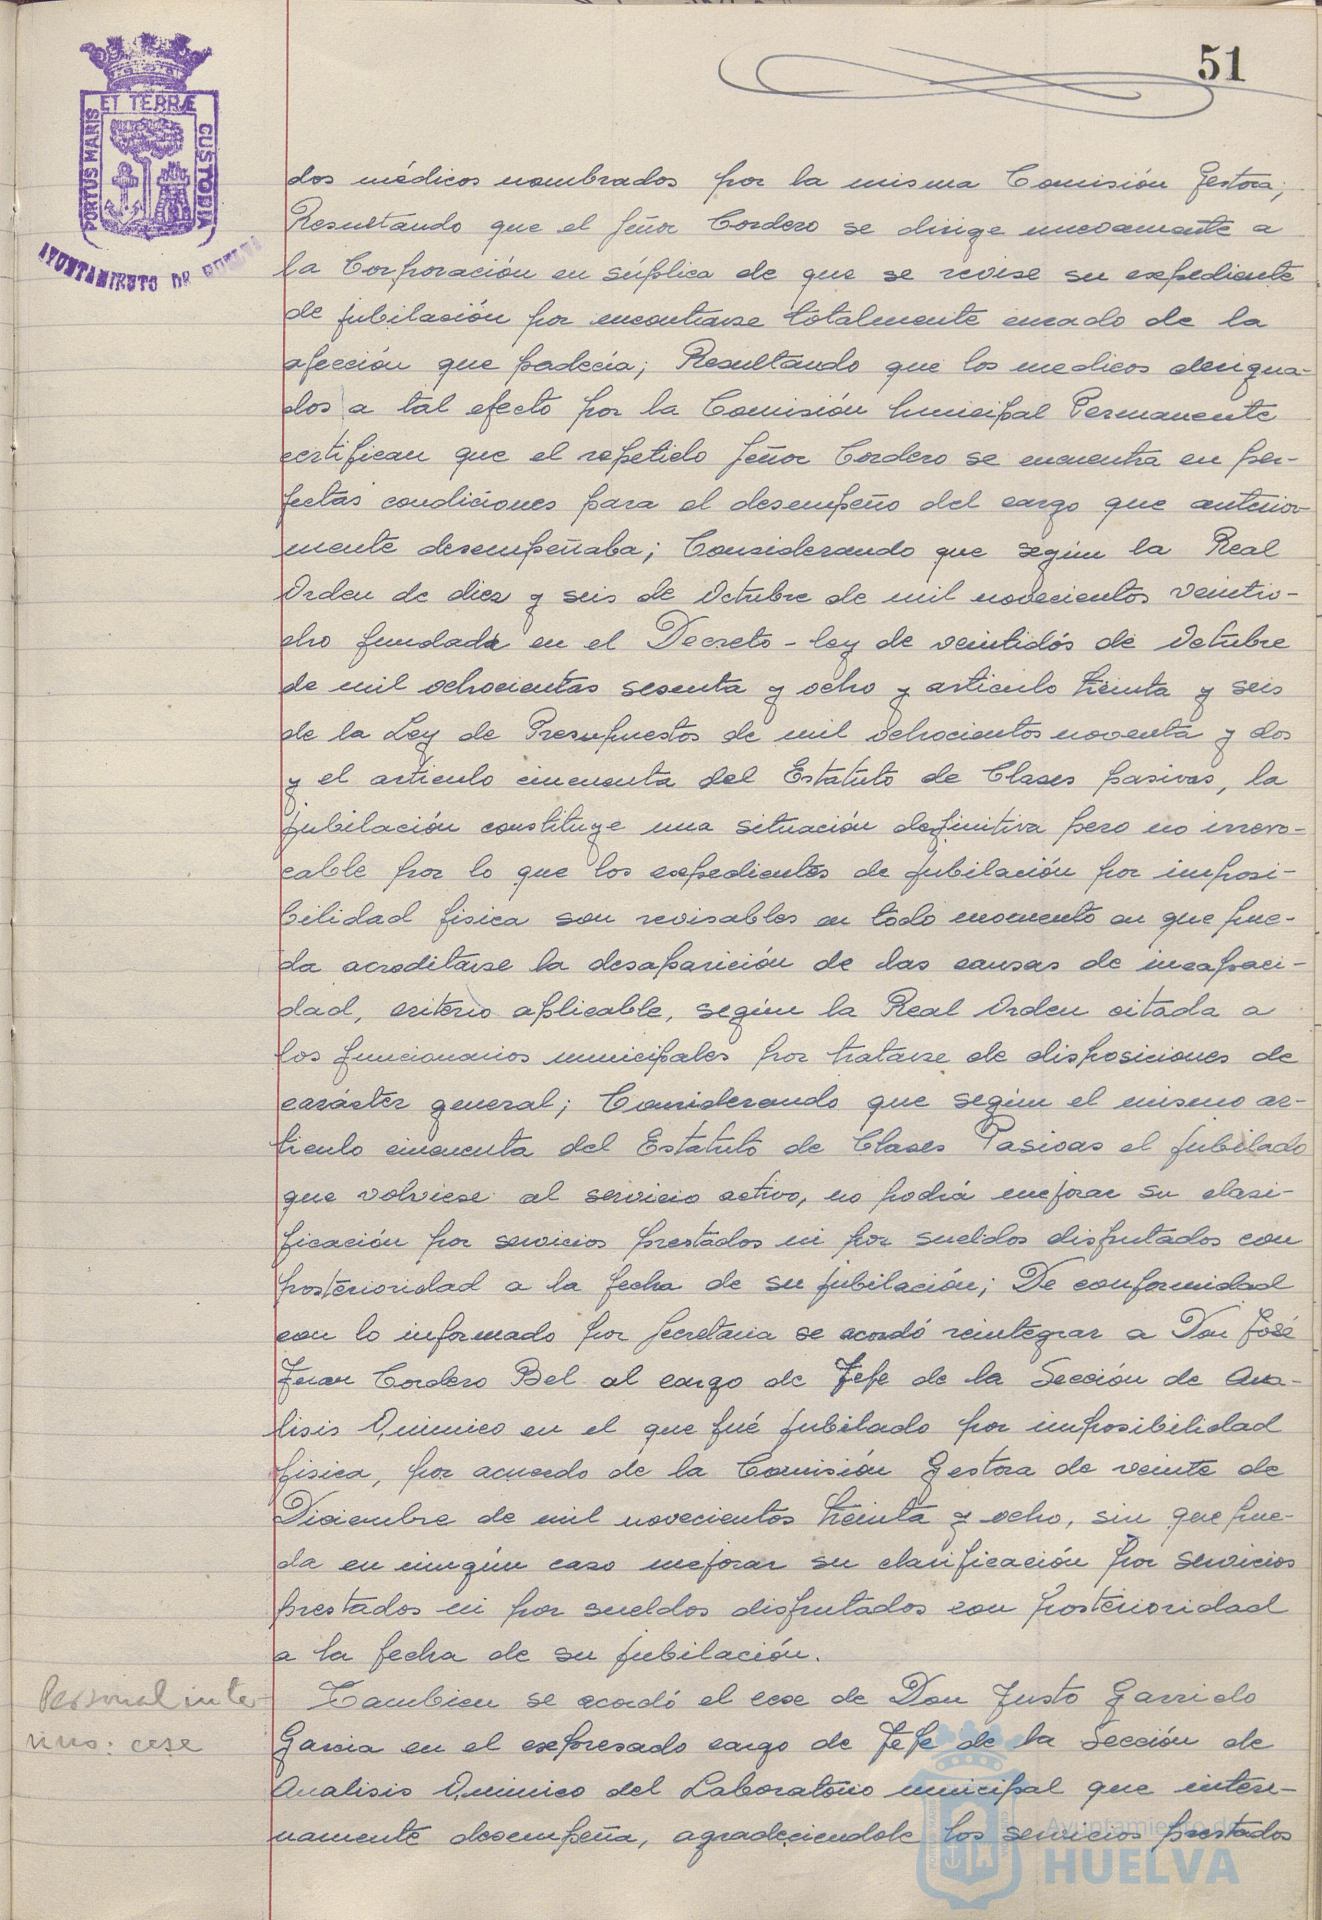 51
PORTUS MARIS ET TERRÆ CUSTODIA
AYUNTAMIENTO DE HUELVA
dos médicos nombrados por la misma Comisión Gestora;
Resultando que el Señor Cordero se dirige nuevamente a
la Corporación en súplica de que se revise su expediente
de jubilación por encontrarse totalmente curado de la
afección que padecía; Resultando que los medicos designa-
dos a tal efecto por la Comisión Municipal Permanente
certifican que el repetido Señor Cordero se encuentra en per-
fectas condiciones para el desempeño del cargo que anterior-
mente desempeñaba; Considerando que según la Real
Orden de diez y seis de Octubre de mil novecientos veintio-
cho fundada en el Decreto-ley de veintidós de Octubre
de mil ochocientos sesenta y ocho y articulo treinta y seis
de la Ley de Presupuestos de mil ochocientos noventa y dos
y el articulo cincuenta del Estatuto de Clases pasivas, la
jubilación constituye una situación definitiva pero no irrevo-
cable por lo que los expedientes de jubilación por imposi-
bilidad fisica son revisables en todo momento en que pue-
da acreditarse la desaparición de las causas de incapaci-
dad, criterio aplicable, según la Real Orden citada a
los funcionarios municipales por tratarse de disposiciones de
carácter general; Considerando que según el mismo ar-
ticulo cincuenta del Estatuto de Clases Pasivas el jubilado
que volviese al servicio activo, no podrá mejorar su clasi-
ficación por servicios prestados ni por sueldos disfrutados con
posterioridad a la fecha de su jubilación; De conformidad
con lo informado por Secretaria se acordó reintegrar a Don José
Juan Cordero Bel al cargo de Jefe de la Sección de Ana-
lisis Quimico en el que fué jubilado por imposibilidad
fisica, por acuerdo de la Comisión Gestora de veinte de
Diciembre de mil novecientos treinta y ocho, sin que pue-
da en ningún caso mejorar su clasificación por servicios
prestados ni por sueldos disfrutados con posterioridad
a la fecha de su jubilación.
Personal inte-
rino: cese
Tambien se acordó el cese de Don Justo Garrido
Garcia en el expresado cargo de Jefe de la Sección de
Analisis Quimico del Laboratorio municipal que interi-
namente desempeña, agradeciendole los servicios prestados
Ayuntamiento de
HUELVA